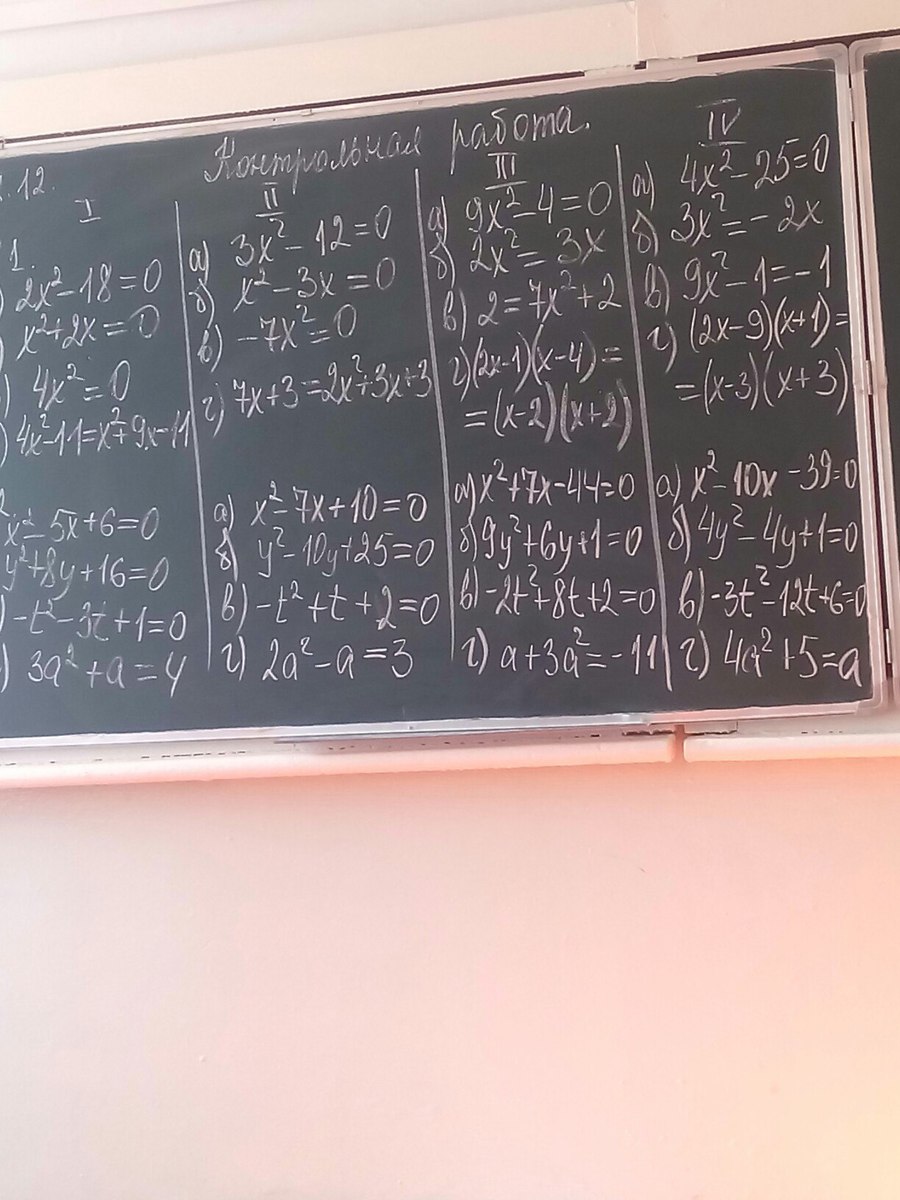 12.
Контрольная работа.
I
1.
2x²-18=0
x²+2x=0
4x²=0
4x²-11=x²+9x-11
x²-5x+6=0
y²+8y+16=0
-t²-3t+1=0
3a²+a=4
II
а) 3x²-12=0
б) x²-3x=0
в) -7x²=0
г) 7x+3=2x²+3x+3
а) x²-7x+10=0
б) y²-10y+25=0
в) -t²+t+2=0
г) 2a²-a=3
III
а) 9x²-4=0
б) 2x²=3x
в) 2=7x²+2
г) (2x-1)(x-4)=
=(x-2)(x+2)
а) x²+7x-44=0
б) 9y²+6y+1=0
в) -2t²+8t+2=0
г) a+3a²=-11
IV
а) 4x²-25=0
б) 3x²=-2x
в) 9x²-1=-1
г) (2x-9)(x+1)=
=(x-3)(x+3)
а) x²-10x-39=0
б) 4y²-4y+1=0
в) -3t²-12t+6=0
г) 4a²+5=a